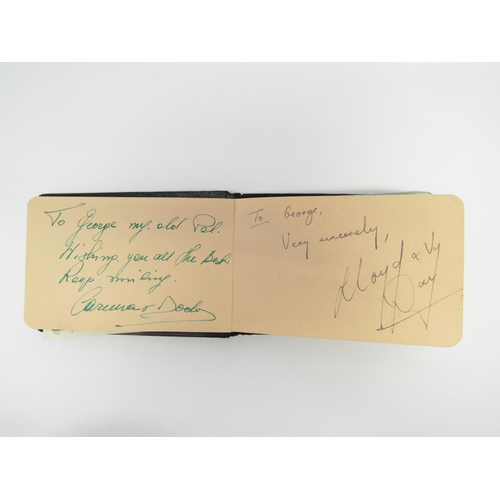 To George my old Pal.
Wishing you all the Best
Keep smiling.
To George,
Very sincerely,
Lloyd & Vy
Day